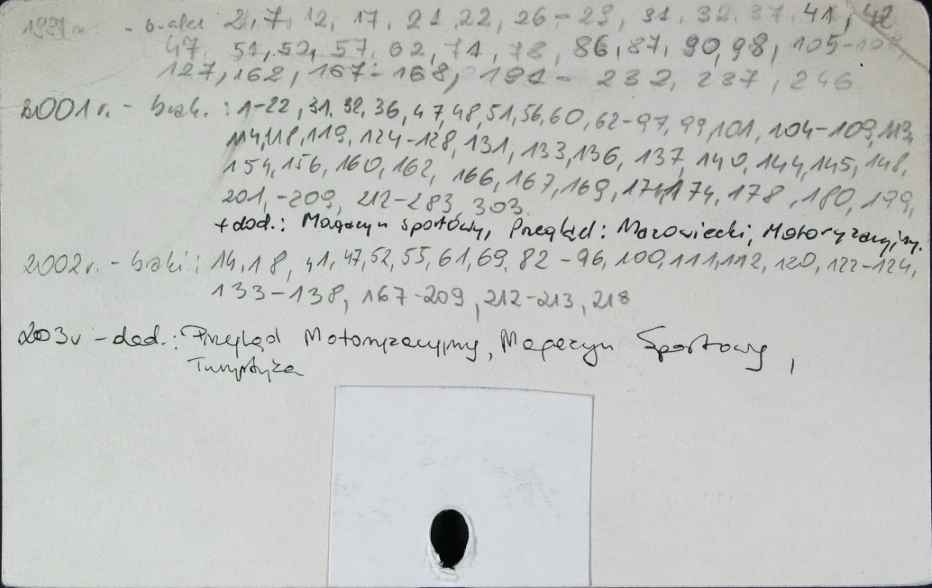 - braki 2, 7, 12, 17, 21, 22, 26-29, 31, 32, 37, 41, 42
47, 51, 52, 57, 62, 71, 78, 86, 87, 90, 98, 105-
127, 162, 167-168, 191-232, 237, 246
2001 r. - brak. : 1-22, 31, 32, 36, 47, 48, 51, 56, 60, 62-97, 99, 101, 104-109, 113,
114, 118, 119, 124-128, 131, 133, 136, 137, 140, 144, 145, 148,
154, 156, 160, 162, 166, 167, 169, 171, 174, 178, 180, 199,
201,-209, 212-283, 303
+ dod.: Magazyn sportowy, Przegląd: Mazowiecki, Motoryzacyjny.
2002 r. - braki: 14, 18, 41, 47, 52, 55, 61, 69, 82-96, 100, 111, 112, 120, 122-124,
133-138, 167-209, 212-213, 218
203 r - dod.: Przegląd Motoryzacyjny, Magazyn Sportowy,
Turystyka